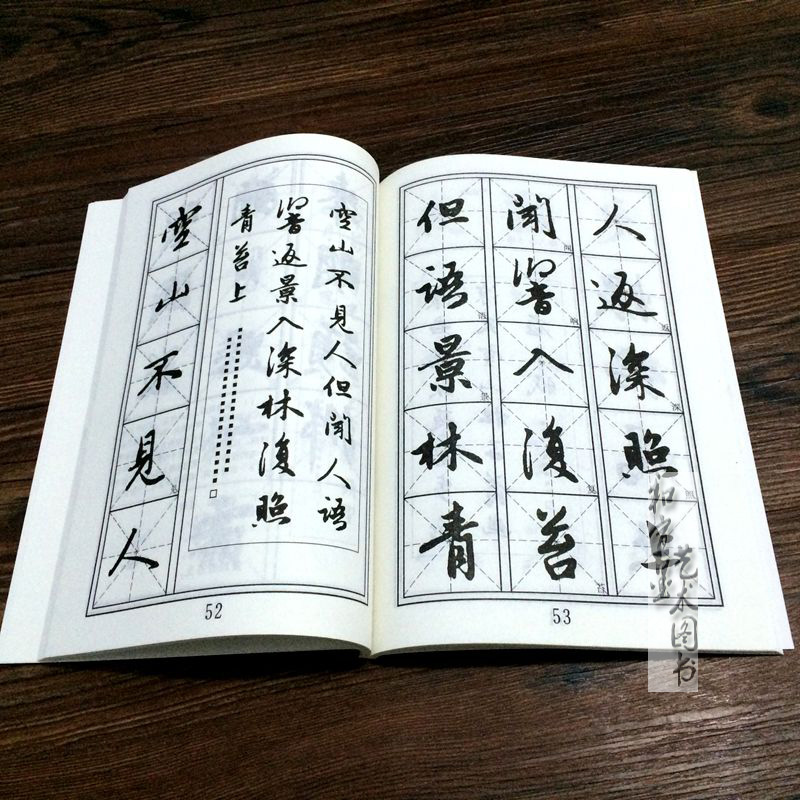 空山不見人
空山不見人但聞人語
響返景入深林復照
青苔上
52
但聞人
語響返
景入深
林復照
青苔
53
艺术图书